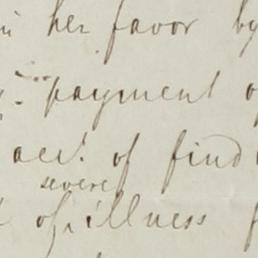 in her favor by
payment of
acct. of find
severe
of illness